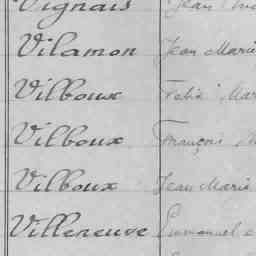 Vignais Jean
Vilamon Jean Marie
Vilboux Felix Mar
Vilboux François M
Vilboux Jean Marie
Villeneuve Emmanuel